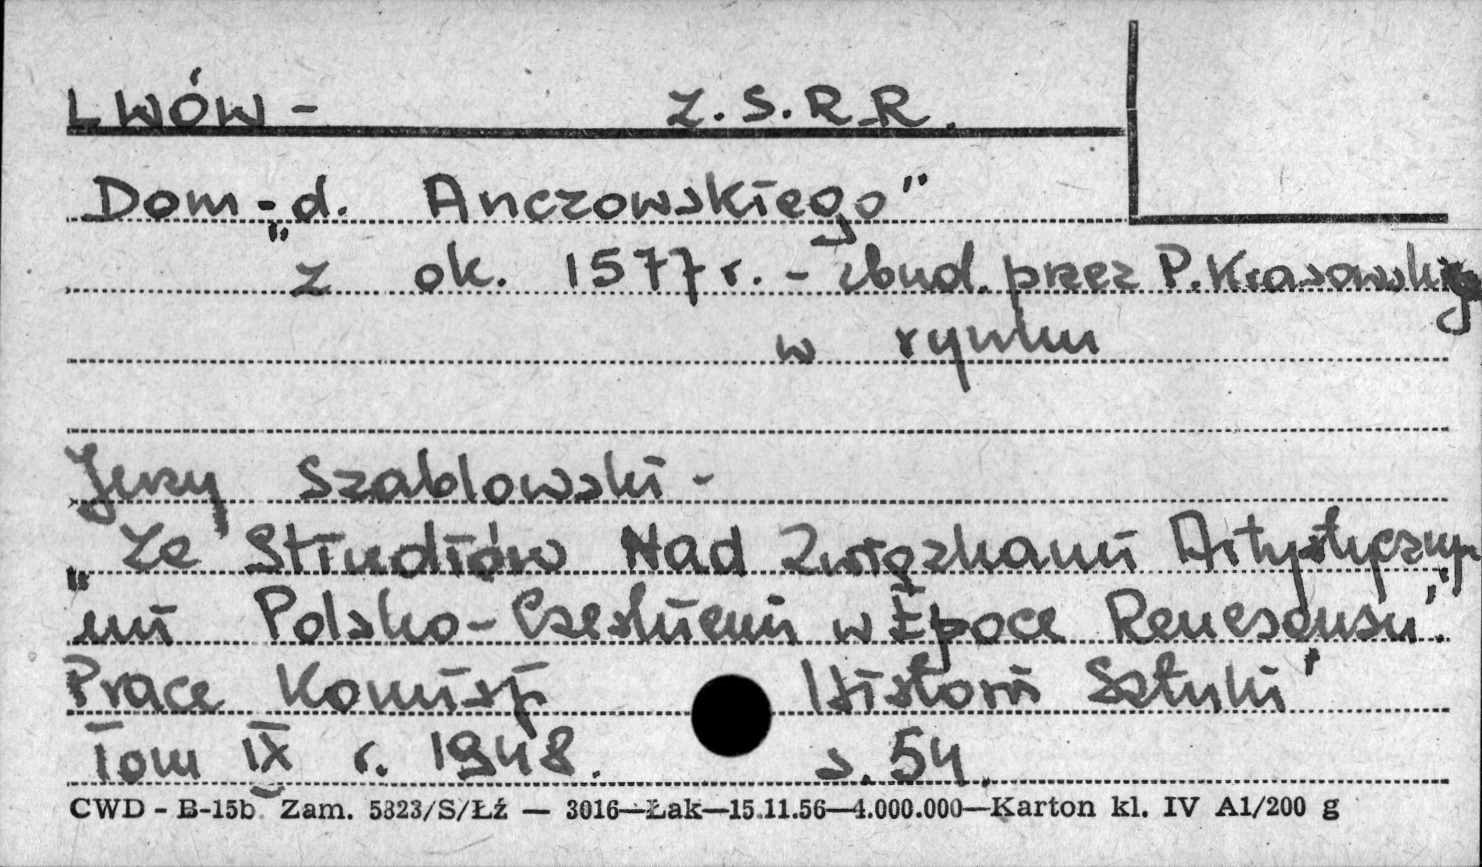 LWÓW - Z.S.R.R.
Dom - „d. Anczowskiego"
z ok. 1577 r. - zbud. przez P. Krasowskiego
w rynku
Jerzy Szablowski -
„Ze Studiów Nad Związkami Artystyczny-
mi Polsko-Czeskiemi w Epoce Renesansu".
Prace Komisji Historii Sztuki'
Tom IX r. 1948. s. 54.
CWD - B-15b Zam. 5823/S/Łź — 3016—Łak—15.11.56—4.000.000—Karton kl. IV A1/200 g